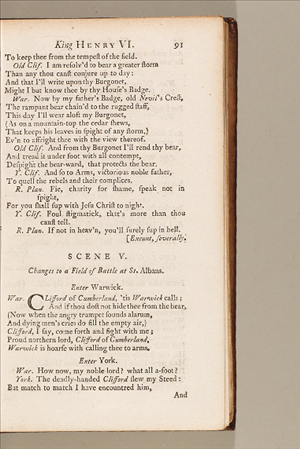 King HENRY VI. 91
To keep thee from the tempest of the field.
Old Clif. I am resolv'd to bear a greater storm
Than any thou canst conjure up to day:
And that I'll write upon thy Burgonet,
Might I but know thee by thy House's Badge.
War. Now by my father's Badge, old Nevil's Crest,
The rampant bear chain'd to the ragged staff,
This day I'll wear aloft my Burgonet,
(As on a mountain-top the cedar shews,
That keeps his leaves in spight of any storm,)
Ev'n to affright thee with the view thereof.
Old Clif. And from thy Burgonet I'll rend thy bear,
And tread it under foot with all contempt,
Despight the bear-ward, that protects the bear.
Y. Clif. And so to Arms, victorious noble father,
To quell the rebels and their complices.
R. Plan. Fie, charity for shame, speak not in
spight,
For you shall sup with Jesu Christ to night.
Y. Clif. Foul stigmatick, that's more than thou
canst tell.
R. Plan. If not in heav'n, you'll surely sup in hell.
[Exeunt, severally.
SCENE V.
Changes to a Field of Battle at St. Albans.
Enter Warwick.
War. Clifford of Cumberland, 'tis Warwick calls;
And if thou dost not hide thee from the bear,
(Now when the angry trumpet sounds alarum,
And dying men's cries do fill the empty air,)
Clifford, I say, come forth and fight with me;
Proud northern lord, Clifford of Cumberland,
Warwick is hoarse with calling thee to arms.
Enter York.
War. How now, my noble lord? what all a-foot?
York. The deadly-handed Clifford slew my Steed:
But match to match I have encountred him,
And